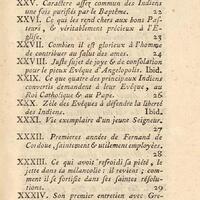 XXV. Caractere assez commun des Indiens
une fois purifiés par le Baptême. 22
XXVI. Ce qui les rend chers aux bons Pas-
teurs, & véritablement précieux à l'E-
glise. 23
XXVII. Combien il est glorieux à l'homme
de contribuer au salut des ames. 24
XXVIII. Juste sujet de joye & de consolation
pour le pieux Evêque d'Angelopolis. Ibid.
XXIX. Ce que quatre des principaux Indiens
convertis demandent à leur Evêque, au
Roi Catholique & au Pape. 26
XXX. Zéle des Evêques à défendre la liberté
des Indiens. Ibid.
XXXI. Vie exemplaire d'un jeune Seigneur.
27
XXXII. Premieres années de Fernand de
Cordoue, saintement & utilement employées.
28
XXXIII. Ce qui avoit refroidi sa piété, le
jette dans la mélancolie: il revient; com-
ment il se fortifie dans ses saintes résolu-
tions. 29
XXXIV. Son premier entretien avec Gre-